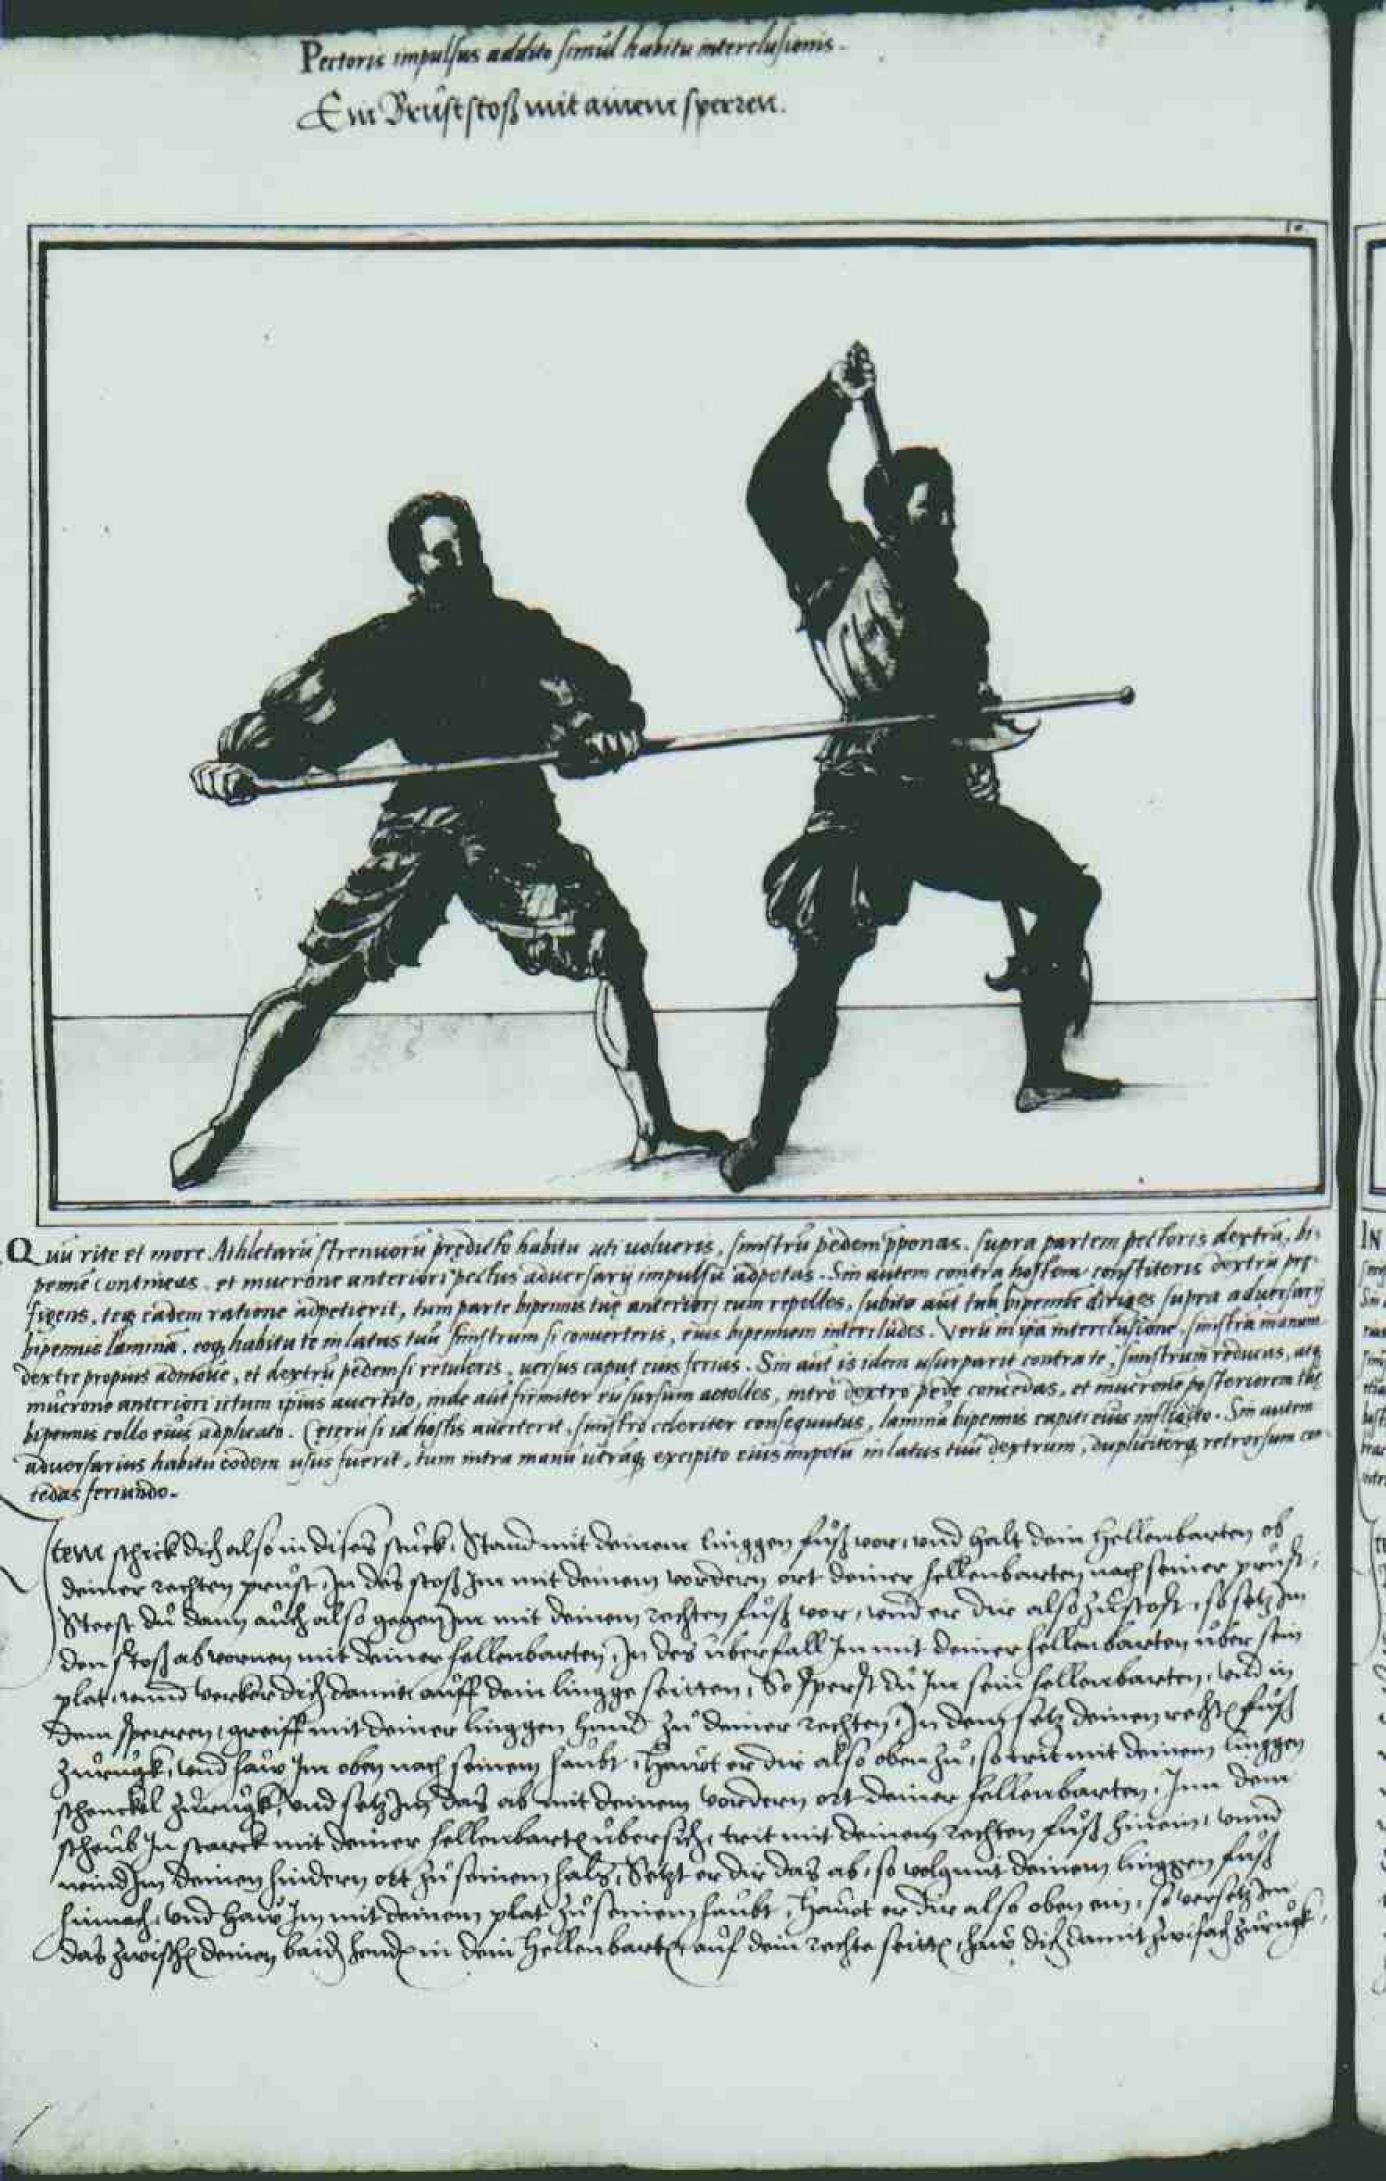 Pectoris impulsus addito simul habitu interclusionis.
Ein Bruststoß mit ainem sperren.
10.
Quũ rite et more Athletarũ strenuorũ prędicto habitu uti volueris, sinistrũ pedem pponas, supra partem pectoris dextrũ, bi-
pennẽ contineas, et mucrone anteriori pectus adversarij impulsu adpetas. Sin autem contra hostem constiteris dextrũ pre-
figens, teq eadem ratione adpetierit, tum parte bipennis tuę anteriori eum repelles, subito aũt tuã bipennẽ diriges supra adversarij
bipennis laminã, eoq habitu te in latus tuũ sinistrum si converteris, eius bipennem intercludes. Verũ in ipã interclusione, sinistrã manum
dextrę propius admove, et dextrũ pedem si retuleris, versus caput eius ferias. Sin aũt is idem usurparit contra te, sinistrum reducas, atq
mucrone anteriori ictum ipsius avertito, inde aũt firmiter eũ sursum attolles, intro dextro pede concedas, et mucronẽ posteriorem tuę
bipennis collo eius adplicato. Cęterũ si id hostis averterit, sinistro celeriter consequutus, laminã bipennis capiti eius infligito. Sin autem
adversarius habitu eodem usus fuerit, tum intra manũ utrãq excipito eius impetũ in latus tuũ dextrum, dupliciterq retrorsum con-
cedas feriundo.
Item schick dich also in dises stuck, Stand mit deinem linggen fuß vor, und halt dein hellenbarten ob
deiner rechten prust, In des stoß Im mit deinem vordern ort deiner hellenbarten nach seiner prust,
Steest du dann auch also gegen Im mit deinem rechten fuß vor, und er dir also zustost, so setz Im
den stoß ab vornen mit deiner hellenbarten, In des uberfall Im mit deiner hellenbarten uber sein
plat, unnd verker dich damit auff dein lingge seitten, So sperst du Im sein hellenbarten, und in
dem sperren, greiff mit deiner linggen hand zu deiner rechten, In dem setz deinen recht fuß
zurugk, und haw Im oben nach seinem haubt, Hawt er dir also oben zu, so trit mit deinem linggen
schenckel zurugk, und setz Im das ab mit deinem vordern ort deiner hellenbarten, Inn dem
scheub In starck mit deiner hellenbart ubersich, trit mit deinem rechten fuß hinein, unnd
wind Im deinen hindern ort zu seinem hals, Setzt er dir das ab, so volg mit deinem linggen fuß
hinnach, und haw Im mit deinem plat zu seinem haubt, Hawt er dir also oben ein, so versetz Im
das zwisch deinen baid hend in dein hellenbart auf dein rechte seitt, haw dich damit zwifach zurugk.